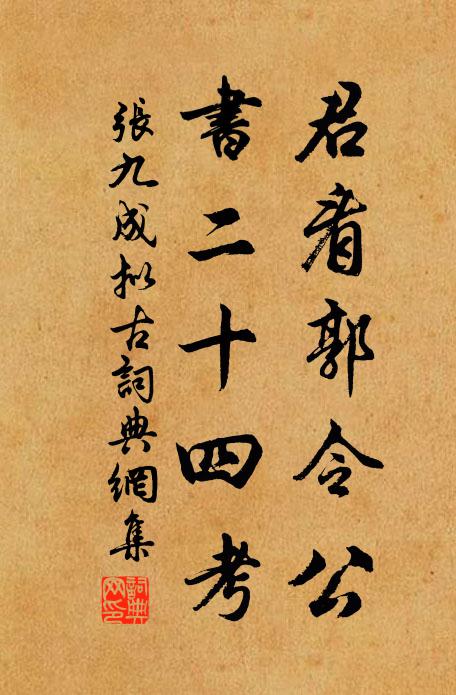 君看郭令公
書二十四考
張九成拟古詞典網集
詞典網印